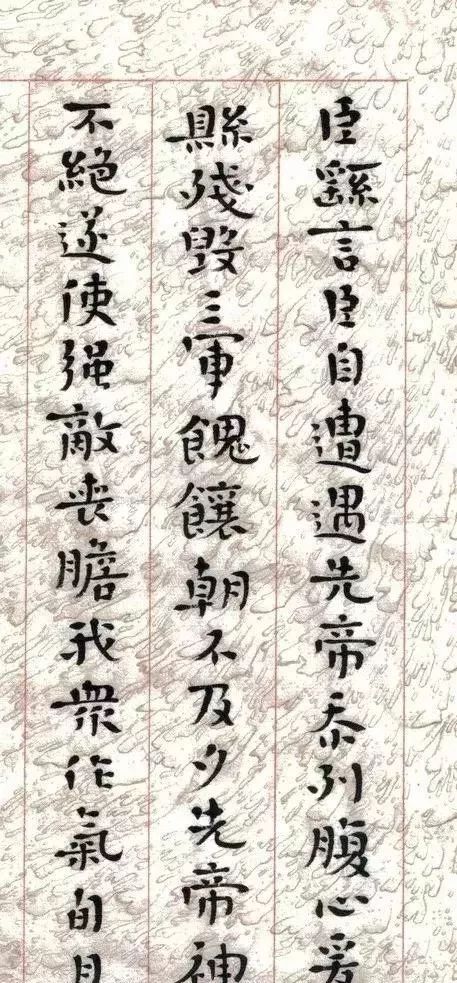 臣繇言臣自遭遇先帝忝列腹心爰
縣殘毀三軍餽饟朝不及夕先帝神
不絕遂使强敵喪膽我眾作氣旬月